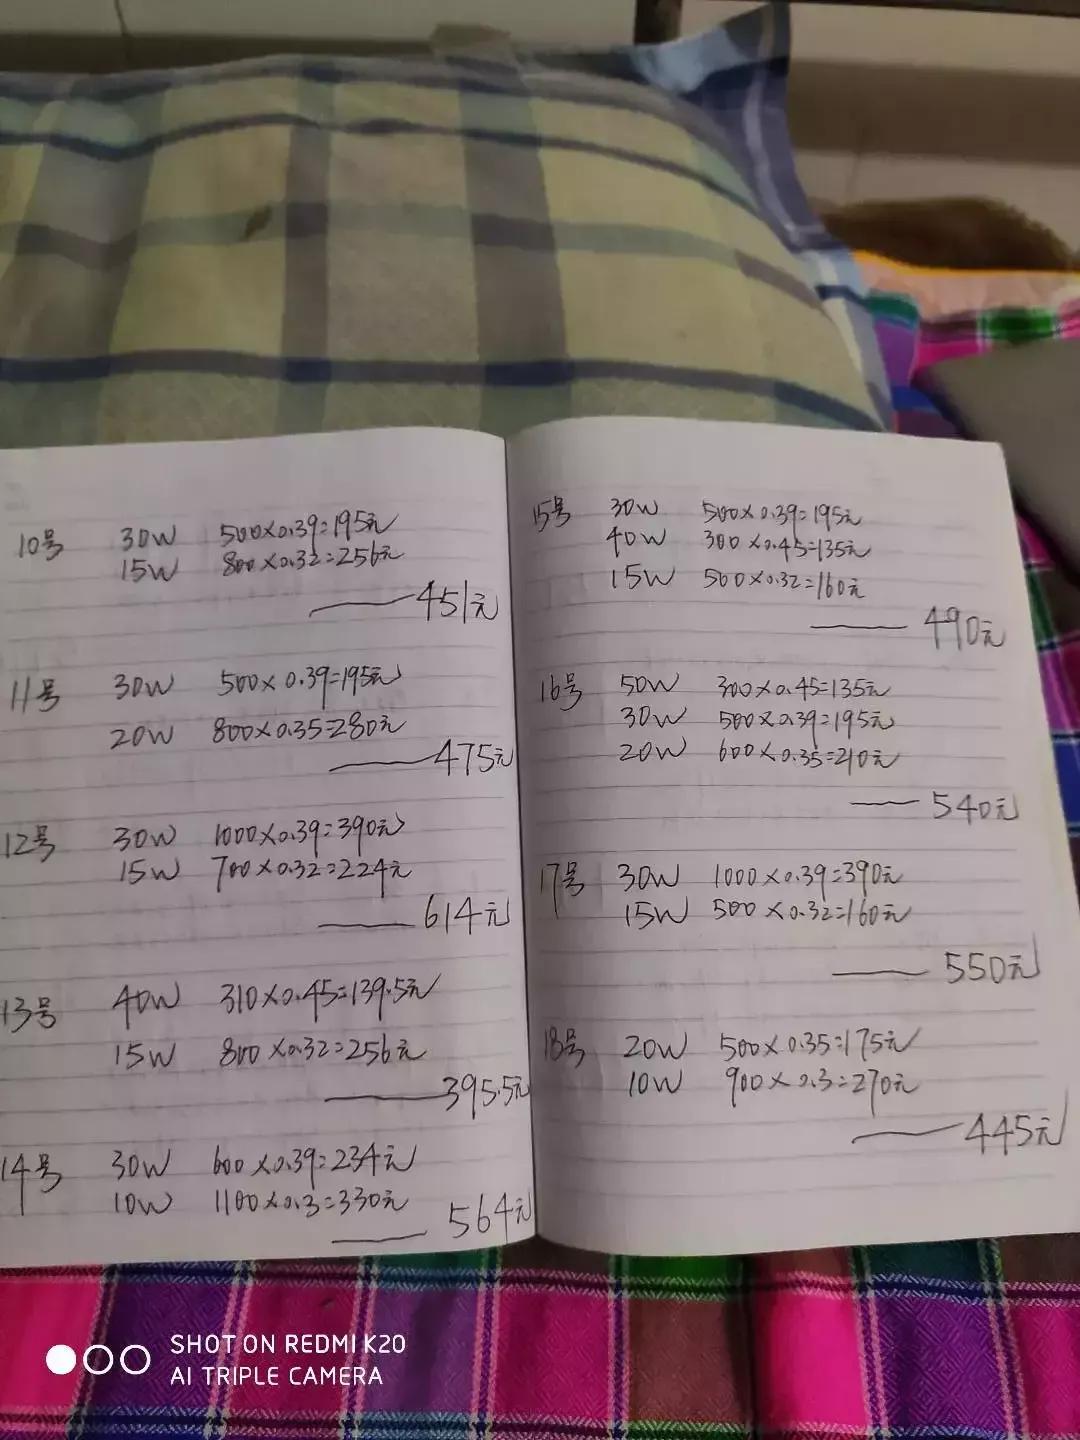 10号 30W 500×0.39=195元
15W 800×0.32=256元
451元
11号 30W 500×0.39=195元
20W 800×0.35=280元
475元
12号 30W 1000×0.39=390元
15W 700×0.32=224元
614元
13号 40W 310×0.45=139.5元
15W 800×0.32=256元
395.5元
14号 30W 600×0.39=234元
10W 1100×0.3=330元
564元
15号 30W 500×0.39=195元
40W 300×0.45=135元
15W 500×0.32=160元
490元
16号 50W 300×0.45=135元
30W 500×0.39=195元
20W 600×0.35=210元
540元
17号 30W 1000×0.39=390元
15W 500×0.32=160元
550元
18号 20W 500×0.35=175元
10W 900×0.3=270元
445元
SHOT ON REDMI K20
AI TRIPLE CAMERA